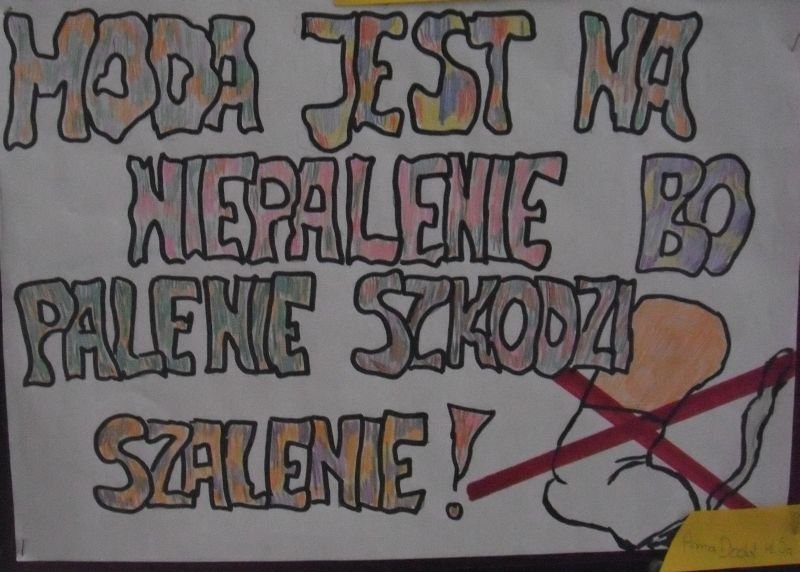 MODA JEST NA
NIEPALENIE BO
PALENIE SZKODZI
SZALENIE!